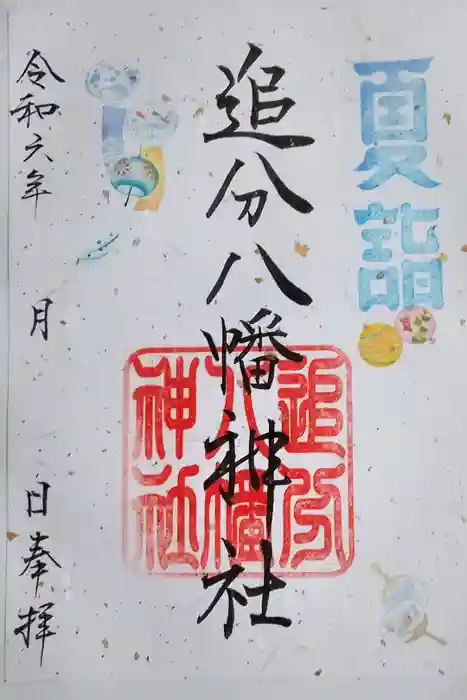 夏詣
追分八幡神社
追分
八幡
神社
令和六年 月 日奉拝